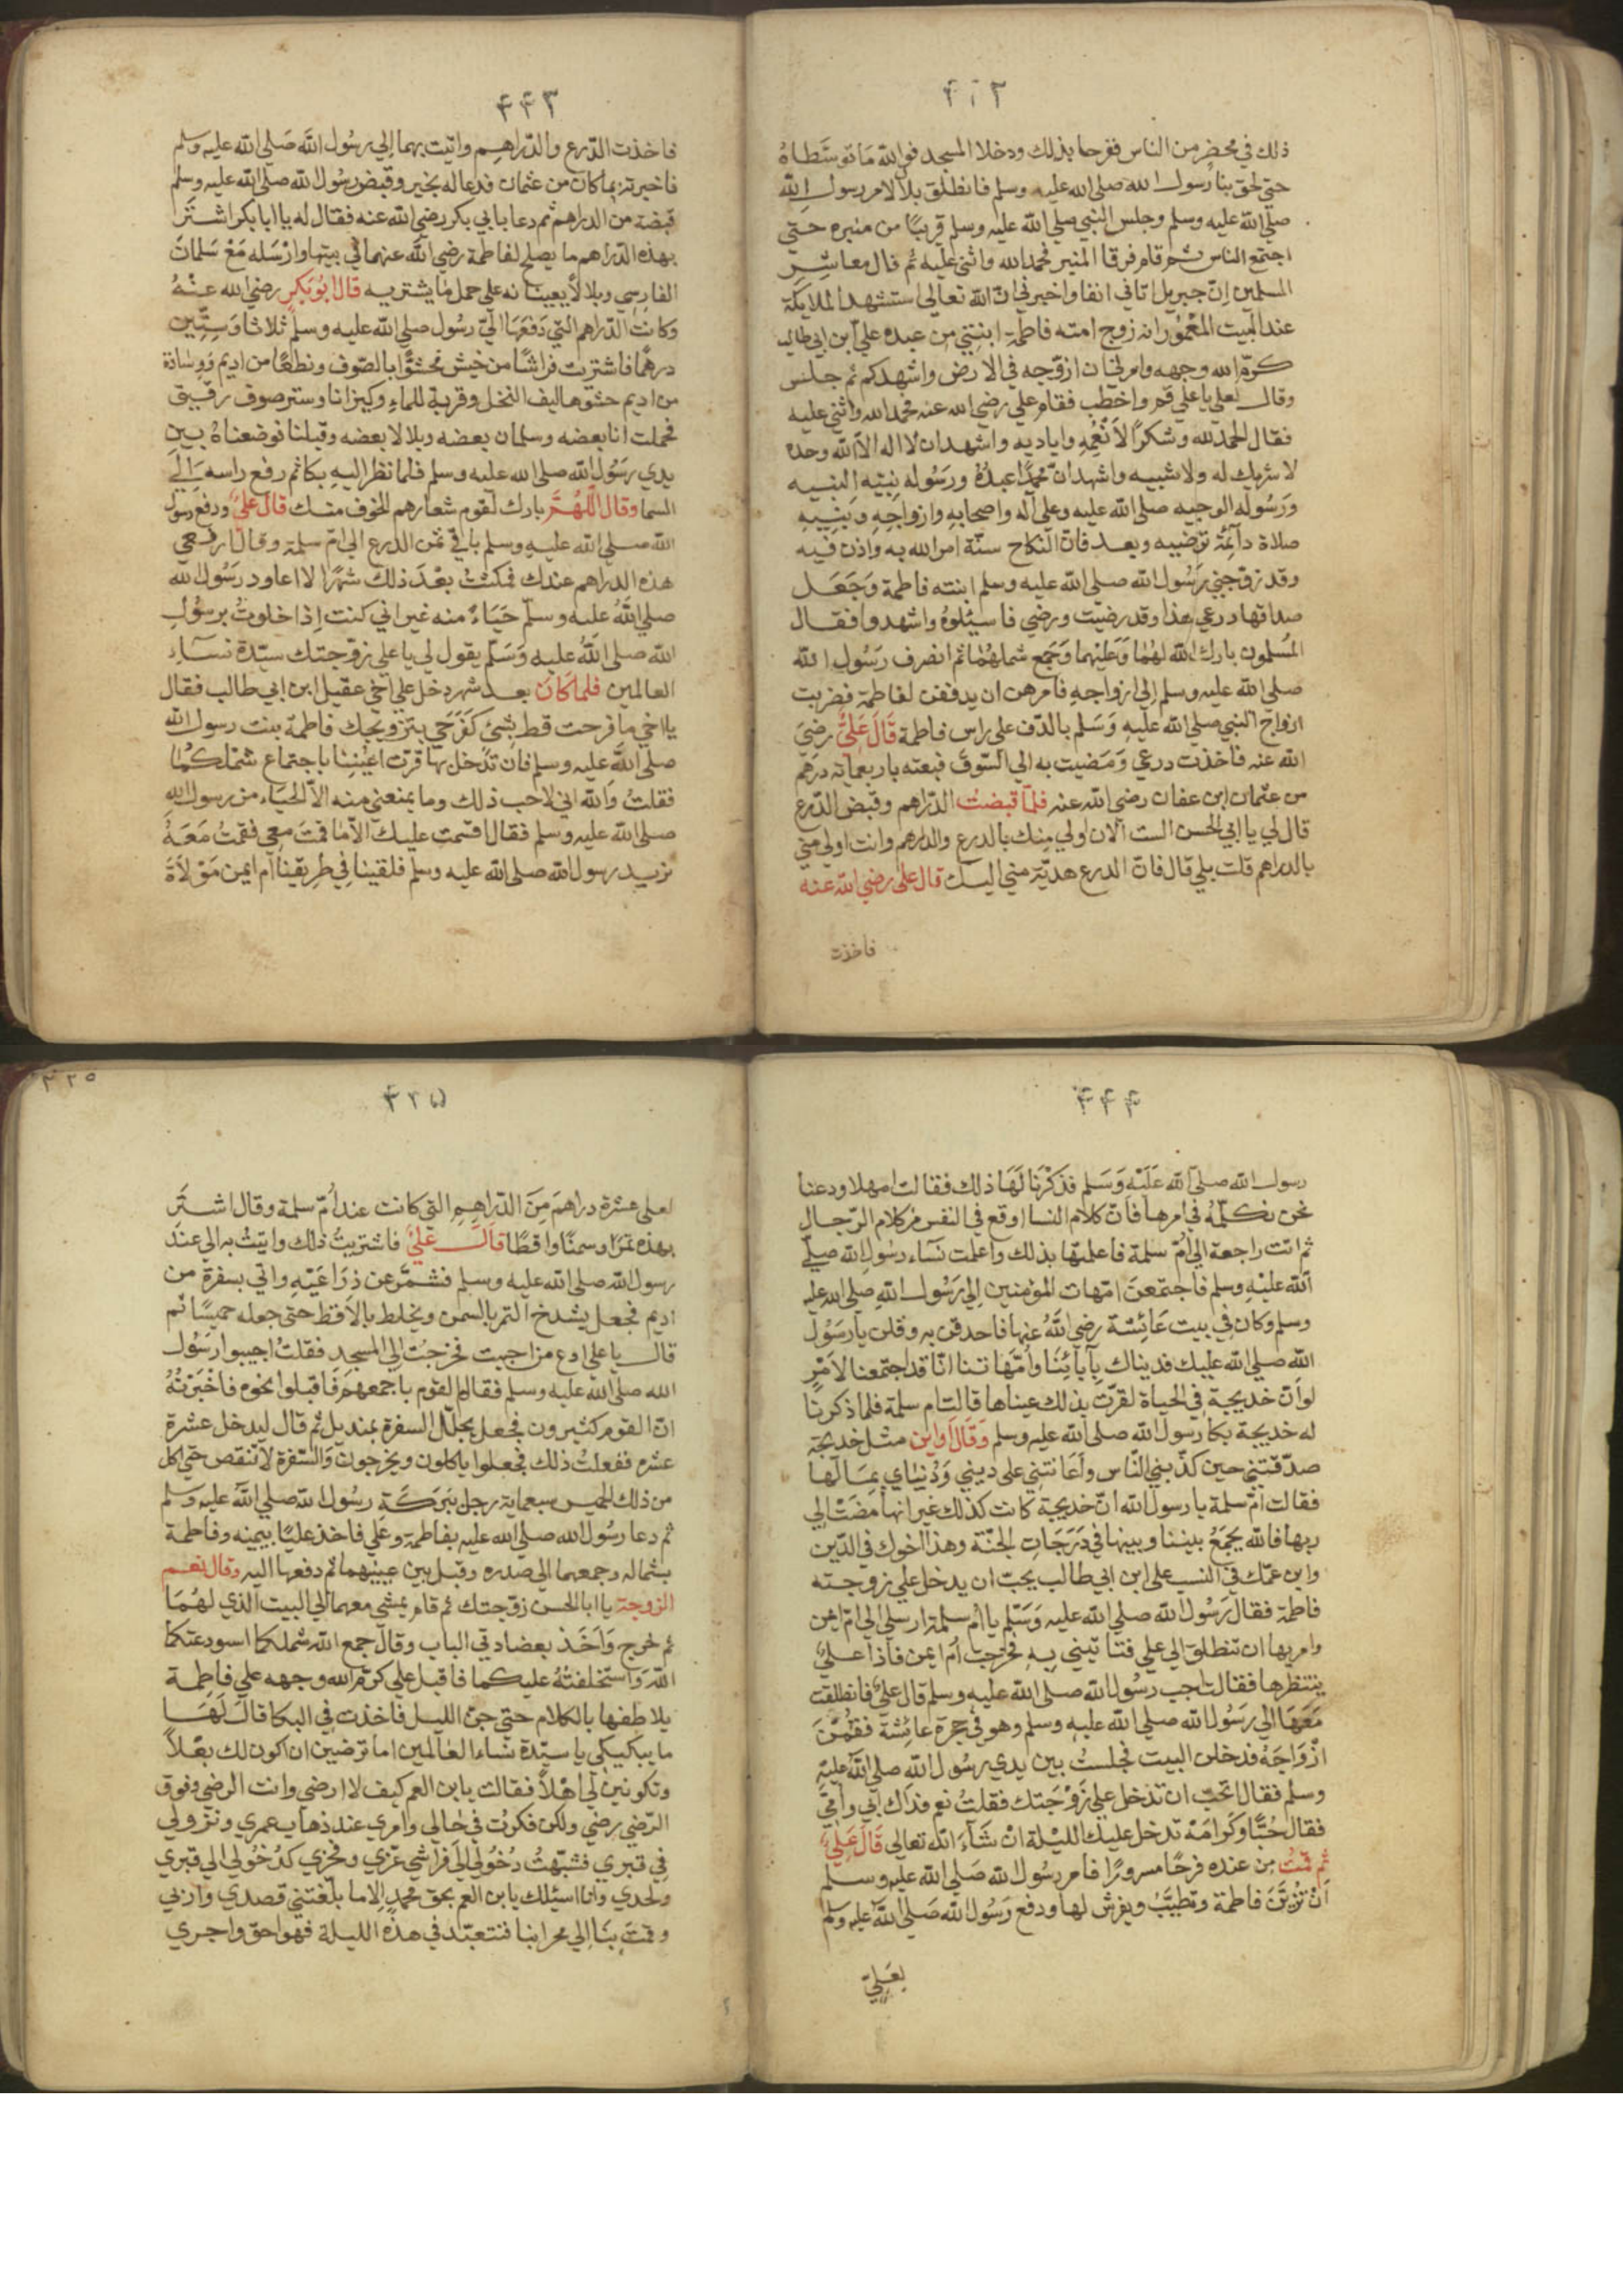 ٤٢٢
ذلك في محضر من الناس ففرحا بذلك ودخلا المسجد فوالله ما توسطاه
حتي لحق بنا رسول الله صلي الله عليه وسلم فانطلق بلالا مر رسول الله
صلي الله عليه وسلم وجلس النبي صلي الله عليه وسلم قريبًا من منبره حتي
اجتمع الناس ثم قام فرقا المنبر فحمد الله واثني عليه ثم قال معاشر
المسلمين انّ جبريل اتاني انفا واخبرني انّ الله تعالي استشهد الملايكة
عند البيت المعمور انه زوج امته فاطمة ابنتي من عبده علي ابن ابي طالب
كرّم الله وجهه وامرني ان ازوّجه في الارض واشهدكم ثم جلس
وقال لعلي يا علي قم واخطب فقام علي رضي الله عنه فحمد الله واثني عليه
فقال الحمد لله وشكرًا لانعمه واياديه واشهد ان لا اله الا الله وحده
لا شريك له ولا شبيه واشهد انّ محمدًا عبده ورسوله نبيّه النبيه
ورسوله الوجيه صلي الله عليه وعلي آله واصحابه وازواجه وبنيه
صلاة دآئمة ترضيه وبعد فانّ النكاح سنّة امر الله به واذن فيه
وقد زوّجني رسول الله صلي الله عليه وسلم ابنته فاطمة وجعل
صداقها درعي هذا وقد رضيت ورضي فاسيئلوه واشهدوا فقال
المسلمون بارك الله لهما وعليهما وجمع شملهما ثم انصرف رسول الله
صلي الله عليه وسلم الي ازواجه فامرهن ان يدففن لفاطمة فضربت
ازواج النبي صلي الله عليه وسلم بالدّف علي راس فاطمة قال عليّ رضي
الله عنه فاخذت درعي ومضيت به الي السّوق فبعته باربعماية درهم
من عثمان ابن عفان رضي الله عنه فلمّا قبضت الدّراهم وقبض الدّرع
قال لي يا ابي الحسن الست الان اولي منك بالدرع والدراهم وانت اولي مني
بالدراهم قلت بلي قال فانّ الدرع هديّة مني اليك قال علي رضي الله عنه
فاخذت
٤٤٣
فاخذت الدّرع والدّراهم واتيت بهما الي رسول الله صلي الله عليه وسلم
فاخبرته بما كان من عثمان فدعا له بخير وقبض رسول الله صلي الله عليه وسلم
قبضة من الدراهم ثم دعا بابي بكر رضي الله عنه فقال له يا ابا بكر اشتر
بهذه الدّراهم ما يصلح لفاطمة رضي الله عنهما في بيتها وارسله مع سلمان
الفارسي وبلالا يعينانه علي حمل ما يشتريه قال ابو بكر رضي الله عنه
وكانت الدّراهم التي دفعها اليّ رسول صلي الله عليه وسلم ثلاثا وستّين
درهمًا فاشتريت فراشًا من خيش محشوًّا بالصّوف ونطعًا من اديم ووسادة
من اديم حشوها ليف النخل وقربة للماء وكيزانا وستر صوف رقيق
فحملت انا بعضه وسلمان بعضه وبلالا بعضه وقبلنا فوضعناه بين
يدي رسول الله صلي الله عليه وسلم فلما نظر اليه بكا ثم رفع راسه الي
السما وقال اللهم بارك لقوم شعارهم الخوف منك قال علي ودفع رسول
الله صلي الله عليه وسلم باقي ثمن الدرع الي امّ سلمة وقال ارفعي
هذه الدراهم عندك فمكثت بعد ذلك شهرًا لا اعاود رسول الله
صلي الله عليه وسلم حياءً منه غير اني كنت اذا خلوت برسول
الله صلي الله عليه وسلم يقول لي يا علي زوّجتك سيّدة نسآء
العالمين فلما كان بعد شهر دخل علي اخي عقيل ابن ابي طالب فقال
يا اخي ما فرحت قط بشئ كفرحي بتزويجك فاطمة بنت رسول الله
صلي الله عليه وسلم فان تدخل بها قرت اعيننا باجتماع شملكما
فقلت والله اني لاحب ذلك وما يمنعني منه الا الحياء من رسول الله
صلي الله عليه وسلم فقال اقسمت عليك الا ما قمت معي فقمت معه
نريد رسول الله صلي الله عليه وسلم فلقينا في طريقنا ام ايمن مولاة
٤٤٤
رسول الله صلي الله عليه وسلم فذكرنا لها ذلك فقالت امهلا ودعنا
نحن نكلّمه في امرها فانّ كلام النسا اوقع في النفس من كلام الرّجال
ثم اتت راجعة الي امّ سلمة فاعلمتها بذلك واعلمت نسآء رسول الله صلّي
الله عليه وسلم فاجتمعن امّهات المؤمنين الي رسول الله صلي الله عليه
وسلم وكان في بيت عائشة رضي الله عنها فاحدقن به وقلن يا رسول
الله صلي الله عليك فديناك بآبآئنا وامّهاتنا انّا قد اجتمعنا لامر
لو انّ خديجة في الحياة لقرّت بذلك عيناها قالت ام سلمة فلما ذكرنا
له خديجة بكا رسول الله صلي الله عليه وسلم وقال واين مثل خديجة
صدّقتني حين كذّبني النّاس واعانتني علي ديني ودنياي بمالها
فقالت امّ سلمة يا رسول الله انّ خديجة كانت كذلك غير انها مضت الي
ربها فالله يجمع بيننا وبينها في درجات الجنّة وهذا اخوك في الدّين
وابن عمّك في النسب علي ابن ابي طالب يحبّ ان يدخل علي زوجته
فاطمة فقال رسول الله صلي الله عليه وسلم يا ام سلمة ارسلي الي امّ ايمن
وامريها ان تنطلق الي علي فتاتيني به فخرجت ام ايمن فاذا عليّ
ينتظرها فقالت اجب رسول الله صلي الله عليه وسلم قال عليّ فانطلقت
معها الي رسول الله صلي الله عليه وسلم وهو في حجرة عائشة فقمن
ازواجه فدخلن البيت فجلست بين يدي رسول الله صلي الله عليه
وسلم فقال اتحبّ ان تدخل علي زوجتك فقلت نعم فداك ابي وامّي
فقال حبًّا وكرامة تدخل عليك الليلة ان شآء الله تعالي قال عليّ
ثم قمت من عنده فرحًا مسرورًا فامر رسول الله صلي الله عليه وسلم
ان تزيّن فاطمة وتطيّب ويفرش لها ودفع رسول الله صلي الله عليه وسلم
لعليّ
٢٢٥
٤٢٥
لعلي عشرة دراهم من الدّراهم التي كانت عند امّ سلمة وقال اشتر
بهذه تمرًا وسمنًا واقطًا قال عليّ فاشتريت ذلك واتيت به الي عند
رسول الله صلي الله عليه وسلم فشمّر عن ذراعيه واتي بسفرة من
اديم فجعل يشدخ التمر بالسمن ويخلط بالاقط حتي جعله حيسًا ثم
قال يا علي ادع من احببت فخرجت الي المسجد فقلت اجيبوا رسول
الله صلي الله عليه وسلم فقام القوم باجمعهم فاقبلوا نحوه فاخبرته
انّ القوم كثيرون فجعل يجلّل السفرة بمنديل ثم قال ليدخل عشرة
عشره ففعلت ذلك فجعلوا ياكلون ويخرجون والسّفرة لا تنقص حتي اكل
من ذلك الحيس سبعماية رجل ببركة رسول الله صلي الله عليه وسلم
ثم دعا رسول الله صلي الله عليه بفاطمة وعلي فاخذ عليًا بيمينه وفاطمة
بشماله وجمعهما الي صدره وقبل بين عينيهما ثم دفعها اليه وقال نعم
الزوجة يا ابا الحسن زوّجتك ثم قام يمشي معهما الي البيت الذي لهما
ثم خرج واخذ بعضادتي الباب وقال جمع الله شملكما استودعتكما
الله واستخلفته عليكما فاقبل علي كرّم الله وجهه علي فاطمة
يلاطفها بالكلام حتي جنّ الليل فاخذت في البكا قال لها
ما يبكيكي يا سيّدة نساء العالمين اما ترضين ان اكون لك بعلًا
وتكونين لي اهلًا فقالت يا بن العم كيف لا ارضي وانت الرضي وفوق
الرّضي رضي ولكن فكرت في حالي وامري عند ذهاب عمري ونزولي
في قبري فشبّهت دخولي الي فراشي عزّي وفخري كدخولي الي قبري
ولحدي وانا اسيئلك يا بن العم بحق محمد الا ما بلّغتني قصدي واربي
وقمت بنا الي محرابنا فنتعبّد في هذه الليلة فهو احق واجري